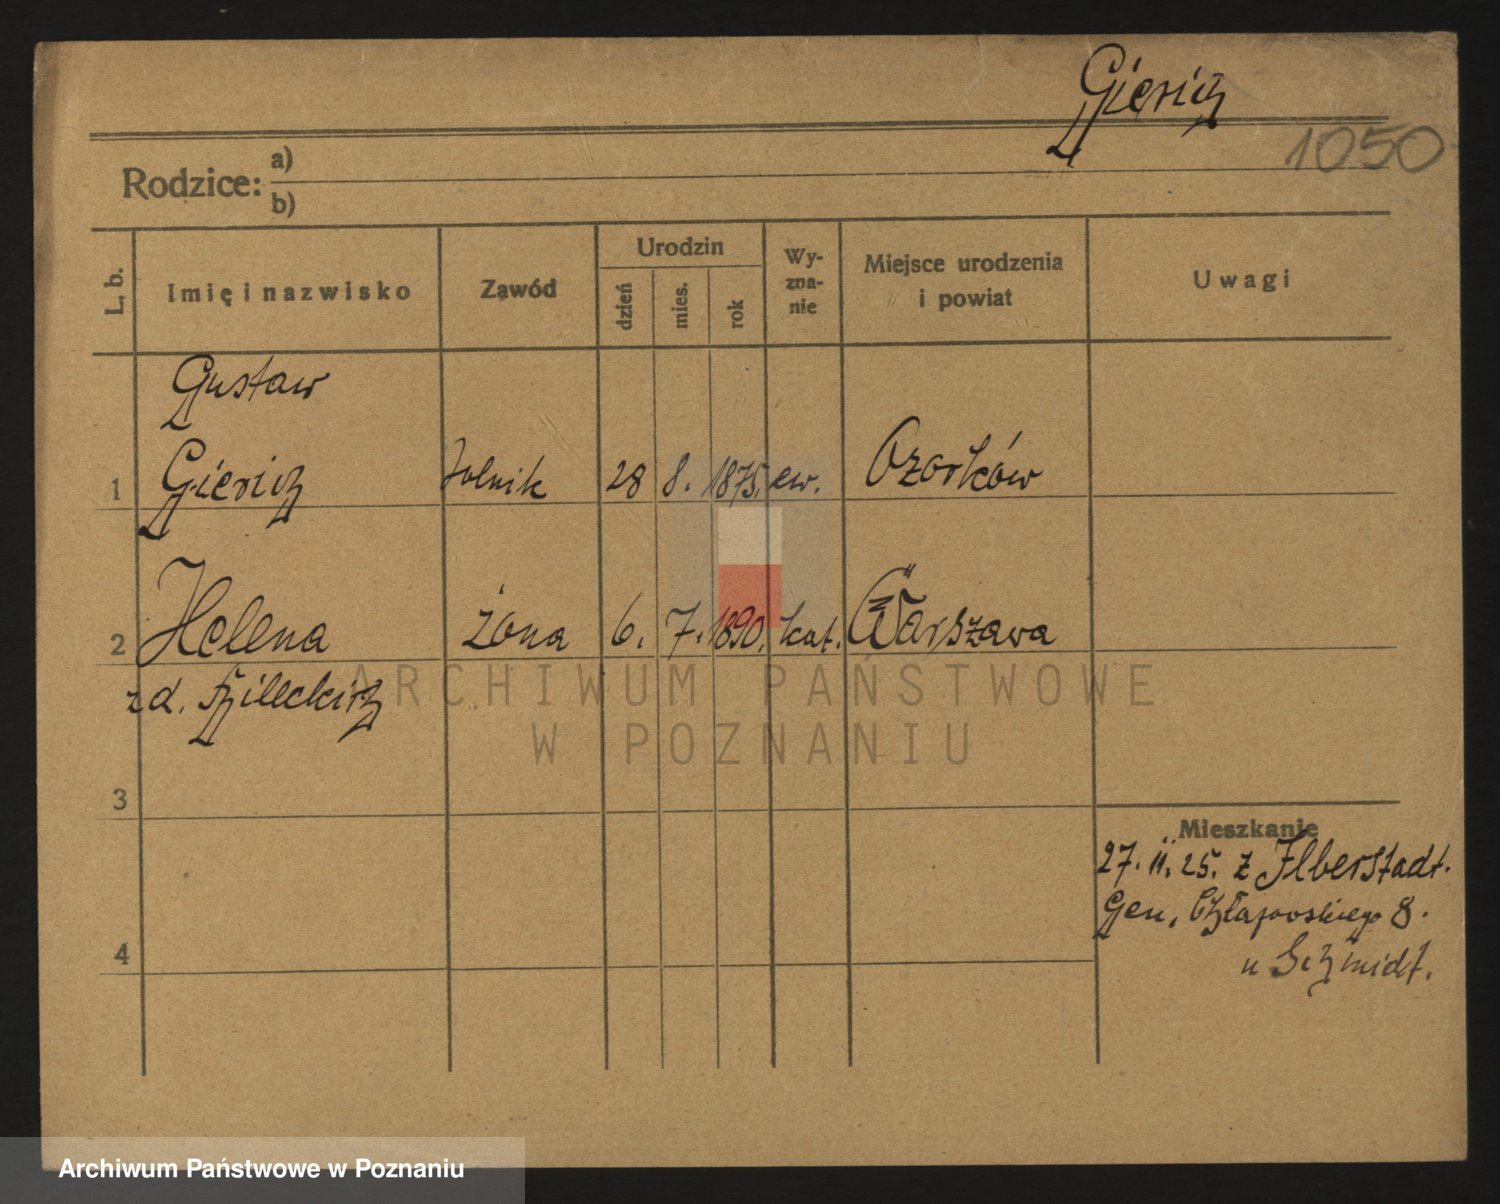 Giericz
1050
Rodzice: a)
b)
L. b. Imię i nazwisko Zawód Urodzin dzień mies. rok Wy-zna-nie Miejsce urodzenia i powiat Uwagi
Gustaw
1 Giericz rolnik 28 8. 1875. ew. Ozorków
2 Helena żona 6. 7. 1890. kat. Warszawa
zd.
3
Mieszkanie
27. II. 25. z Ilberstadt.
Gen. Chłapowskiego 8.
4
u Schmidt.
ARCHIWUM PAŃSTWOWE
W POZNANIU
Archiwum Państwowe w Poznaniu